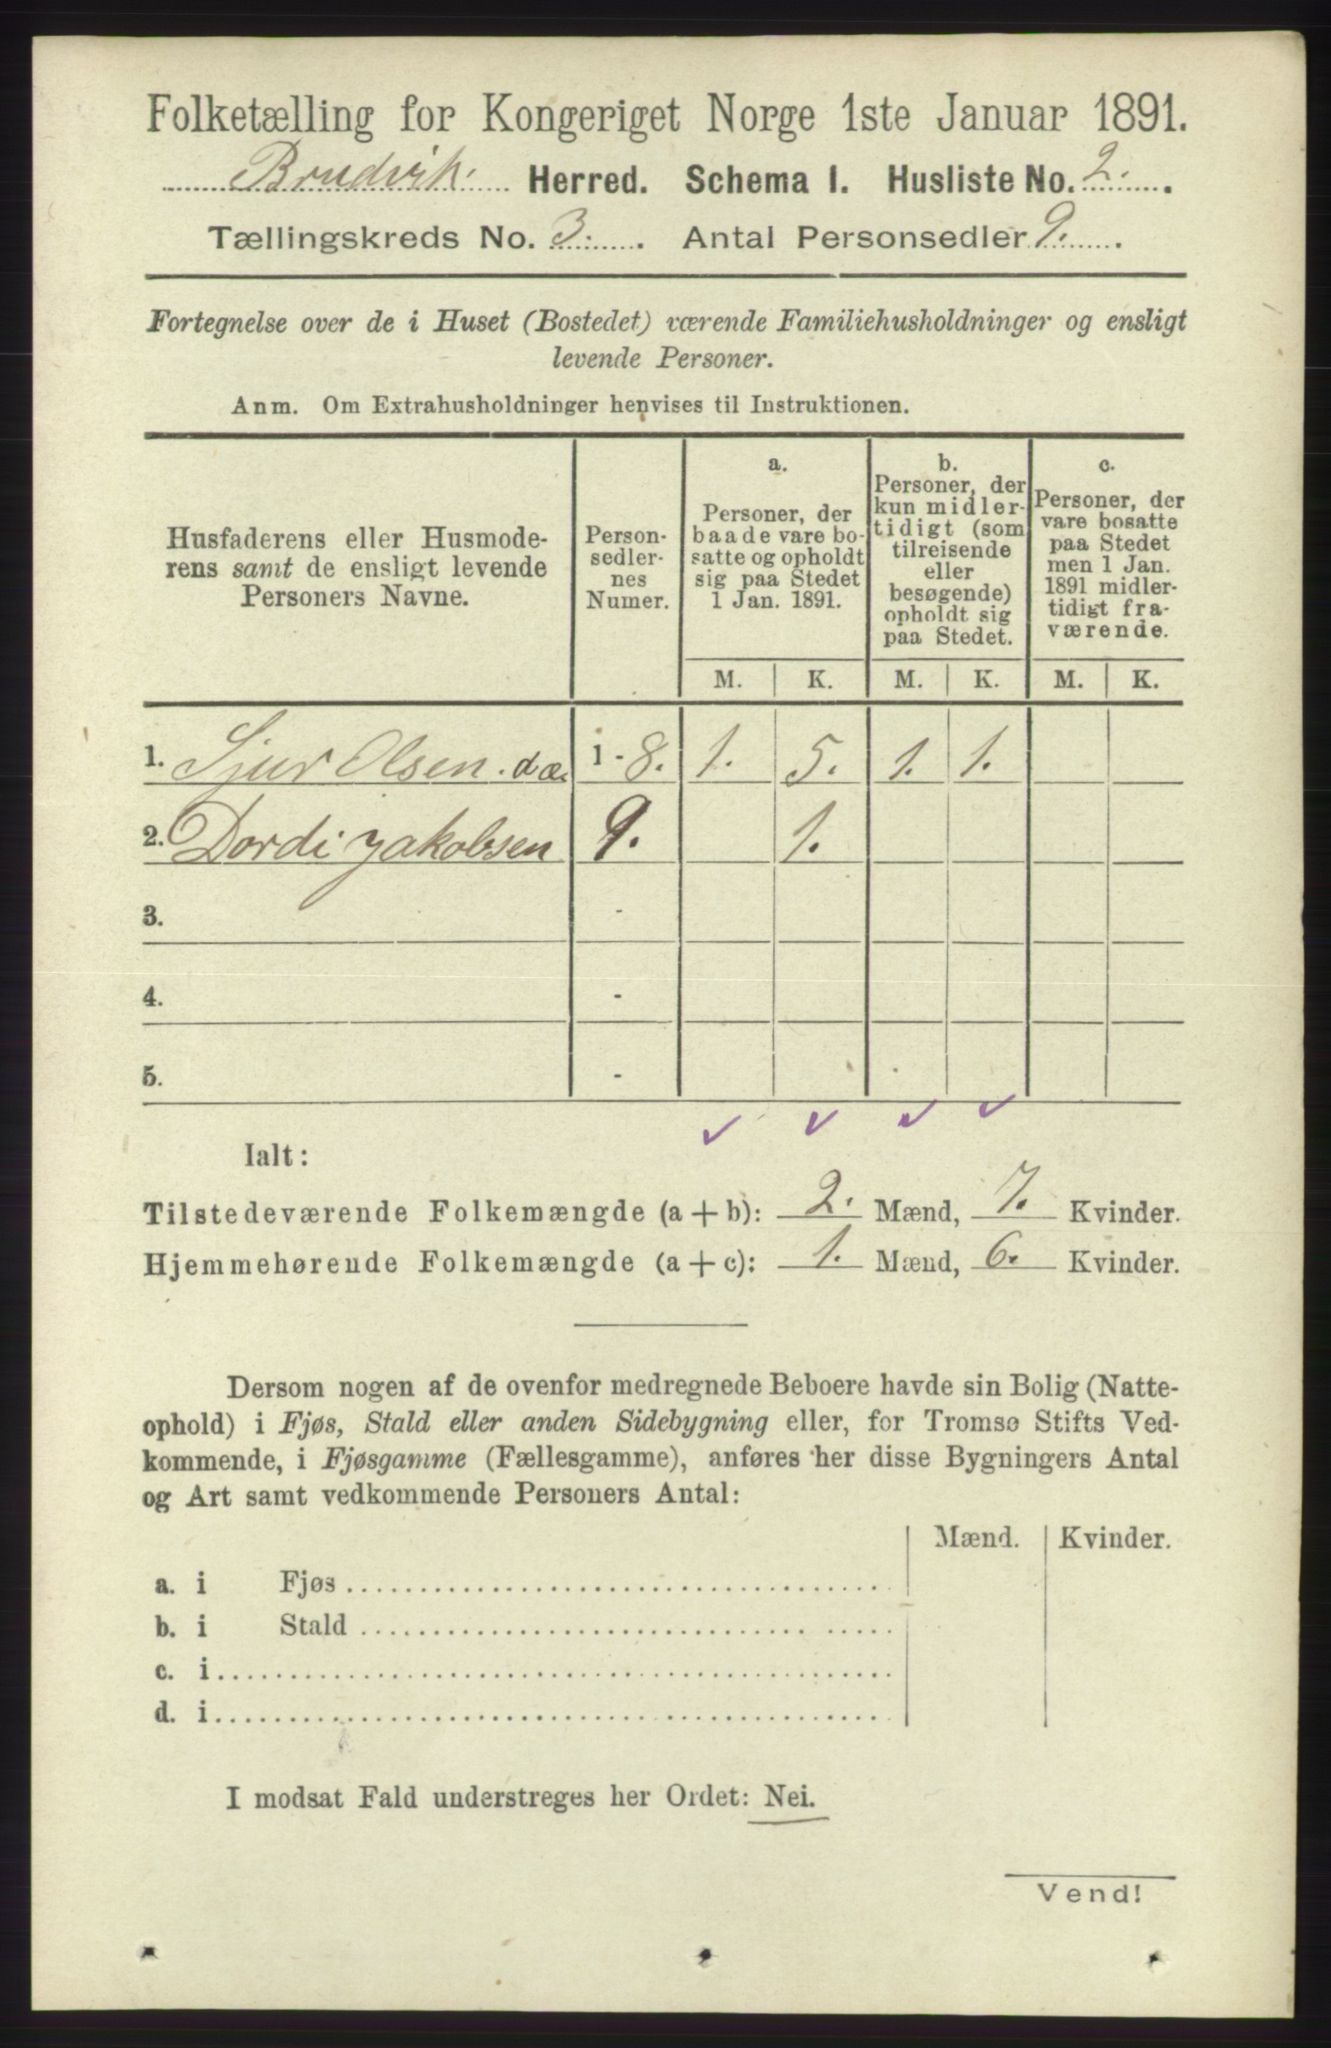 Folketælling for Kongeriget Norge 1ste Januar 1891.
Brudvik. Herred. Schema I. Husliste No. 2.
Tællingskreds No. 3. Antal Personsedler 9.
Fortegnelse over de i Huset (Bostedet) værende Familiehusholdninger og ensligt
levende Personer.
Anm. Om Extrahusholdninger henvises til Instruktionen.
Husfaderens eller Husmode-
rens samt de ensligt levende
Personers Navne.
Person-
sedler-
nes
Numer.
a.
Personer, der
baade vare bo-
satte og opholdt
sig paa Stedet
1 Jan. 1891.
b.
Personer, der
kun midler-
tidigt (som
tilreisende
eller
besøgende)
opholdt sig
paa Stedet.
c.
Personer, der
vare bosatte
paa Stedet
men 1 Jan.
1891 midler-
tidigt fra-
værende.
M. K. M. K. M. K.
1. Sjur Olsen. dæ. 1 - 8. 1. 5. 1. 1.
2. Dordi Jakobsen 9. 1.
3. -
4. -
5. -
Ialt:
Tilstedeværende Folkemængde (a + b): 2. Mænd, 7. Kvinder.
Hjemmehørende Folkemængde (a + c): 1. Mænd, 6. Kvinder.
Dersom nogen af de ovenfor medregnede Beboere havde sin Bolig (Natte-
ophold) i Fjøs, Stald eller anden Sidebygning eller, for Tromsø Stifts Ved-
kommende, i Fjøsgamme (Fællesgamme), anføres her disse Bygningers Antal
og Art samt vedkommende Personers Antal:
Mænd. Kvinder.
a. i Fjøs
b. i Stald
c. i
d. i
I modsat Fald understreges her Ordet: Nei.
Vend!